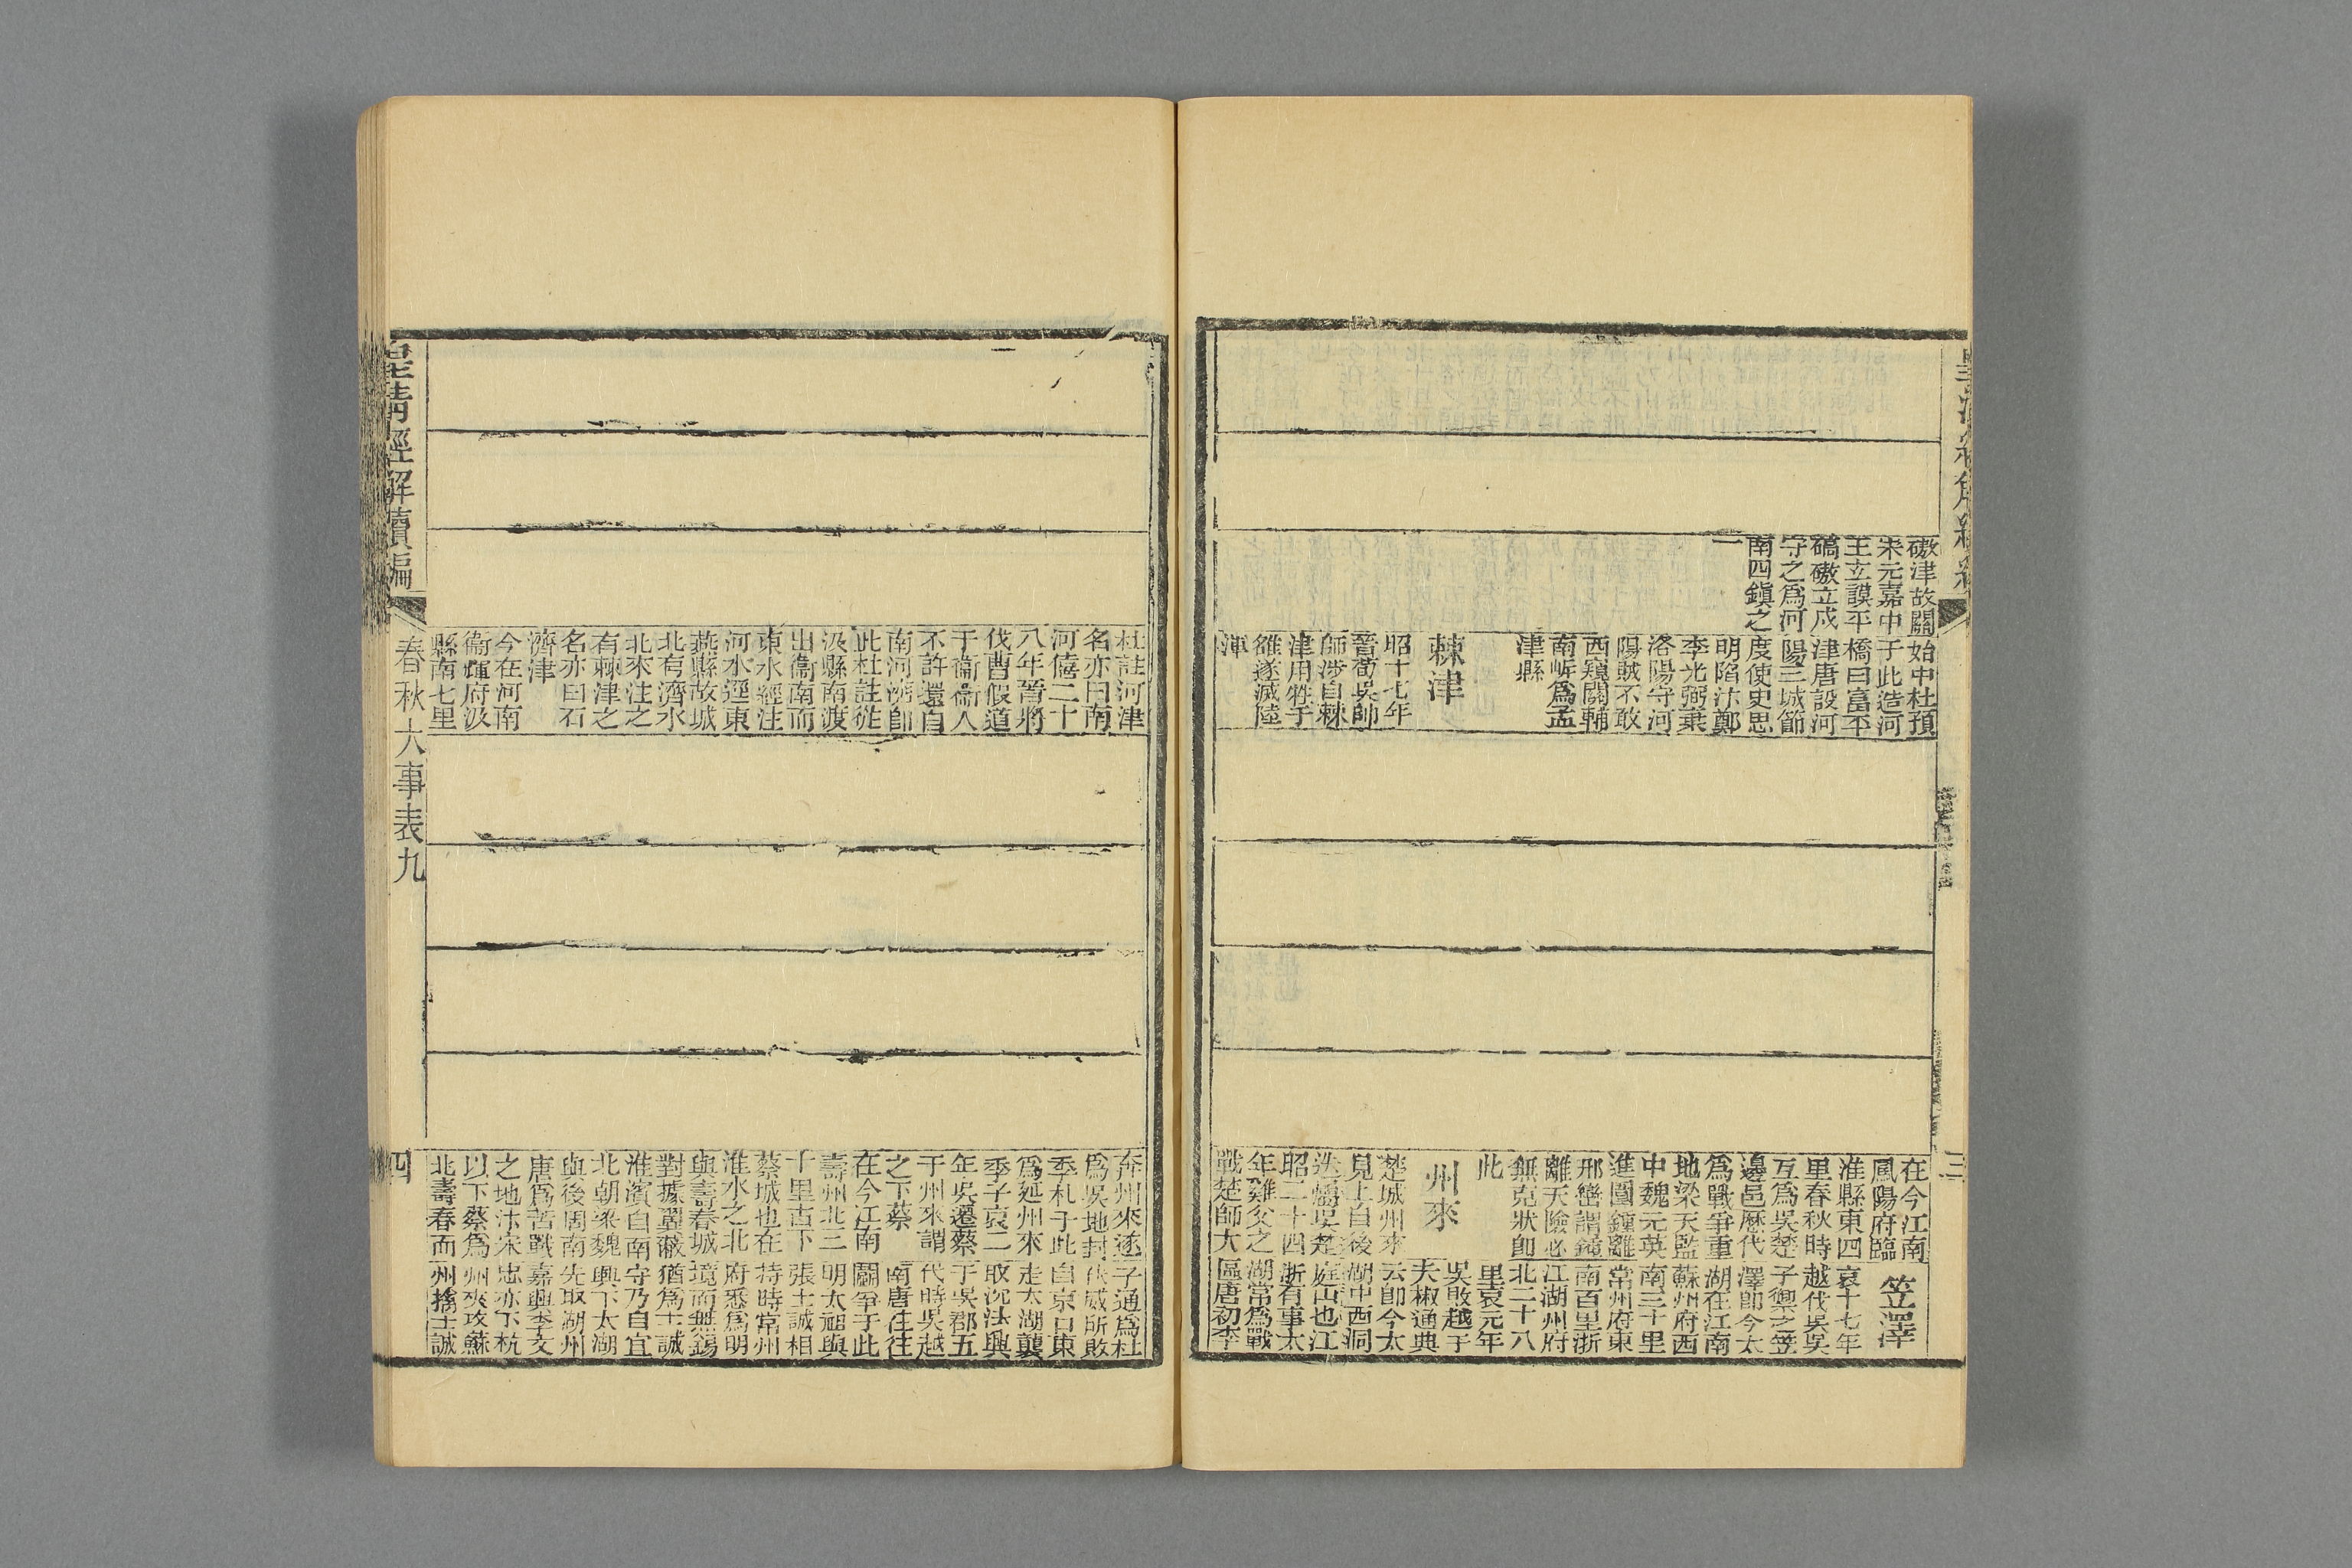 磝津故關
宋元嘉中
王立謨平
碻磝立戍
守之爲河
南四鎭之
一
始中杜預
于此造河
橋曰富平
津唐設河
陽三城節
度使史思
明陷汴鄭
李光弼棄
洛陽守河
陽賊不敢
西窺關輔
南岍爲孟
津縣
棘津
昭十七年
晉荀吳帥
師涉自棘
津用牲于
雒遂滅陸
渾
在今江南
鳳陽府臨
淮縣東四
里春秋時
互爲吳楚
邊邑歷代
爲戰爭重
地梁天監
中魏元英
進圍鍾離
邢巒謂鍾
離天險必
無克狀卽
此
州來
楚城州來
見上自後
迭屬吳楚
昭二十四
年雞父之
戰楚師大
笠澤
哀十七年
越伐吳吳
子禦之笠
澤卽今太
湖在江南
蘇州府西
南三十里
常州府東
南百里浙
江湖州府
北二十八
里哀元年
吳敗越于
夫椒通典
云卽今太
湖中西洞
庭山也江
浙有事太
湖常爲戰
區唐初李
三
杜註河津
名亦曰南
河僖二十
八年晉將
伐曹假道
于衞衞人
不許還自
南河濟卽
此杜註從
汲縣南渡
出衞南而
東水經注
河水逕東
燕縣故城
北有濟水
北來注之
有棘津之
名亦曰石
濟津
今在河南
衞輝府汲
縣南七里
奔州來遂
爲吳地封
季札于此
爲延州來
季子哀二
年吳遷蔡
于州來謂
之下蔡
在今江南
壽州北三
十里古下
蔡城也在
淮水之北
與壽春城
對據翼蔽
淮濱自南
北朝梁魏
與後周南
唐爲苦戰
之地汴宋
以下蔡爲
北壽春而
子通爲杜
伏威所敗
自京口東
走太湖襲
取沈法興
于吳郡五
代時吳越
南唐往往
鬭爭于此
明太祖與
張士誠相
持時常州
府悉爲明
境而無錫
猶爲士誠
守乃自宜
興下太湖
先取湖州
嘉興李文
忠亦下杭
州夾攻蘇
州擒士誠
皇淸經解續編
春秋大事表九
四